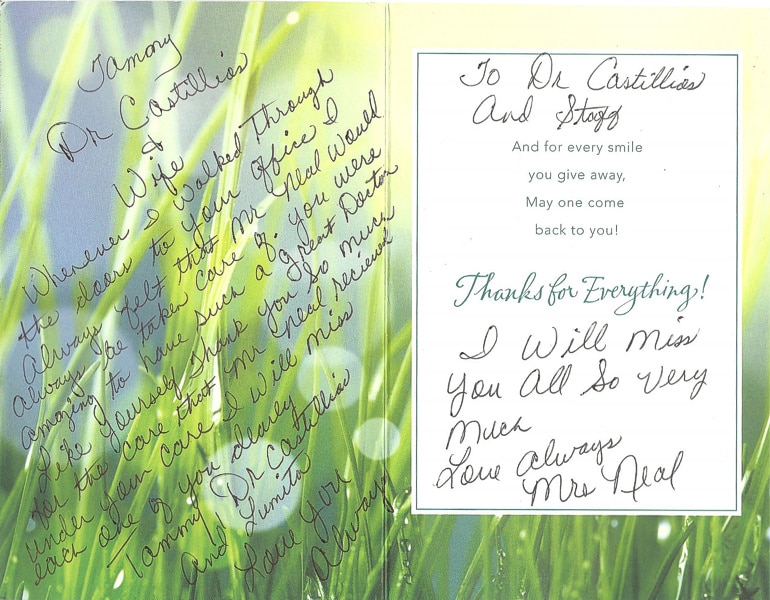 Tammy
Dr Castillios
&
Wife
Whenever I walked Through
the doors to your office I
Always felt that Mr Neal would
always be taken care of. you were
amazing to have such a great Doctor
Like yourself Thank you so much
for the care that Mr Neal recieved
under your care I will miss
each one of you dearly
Tammy Dr Castillios
And Lumita
Love You
Always
To Dr Castillios
And Staff
And for every smile
you give away,
May one come
back to you!
Thanks for Everything!
I Will Miss
You All So Very
Much
Love always
Mrs Neal